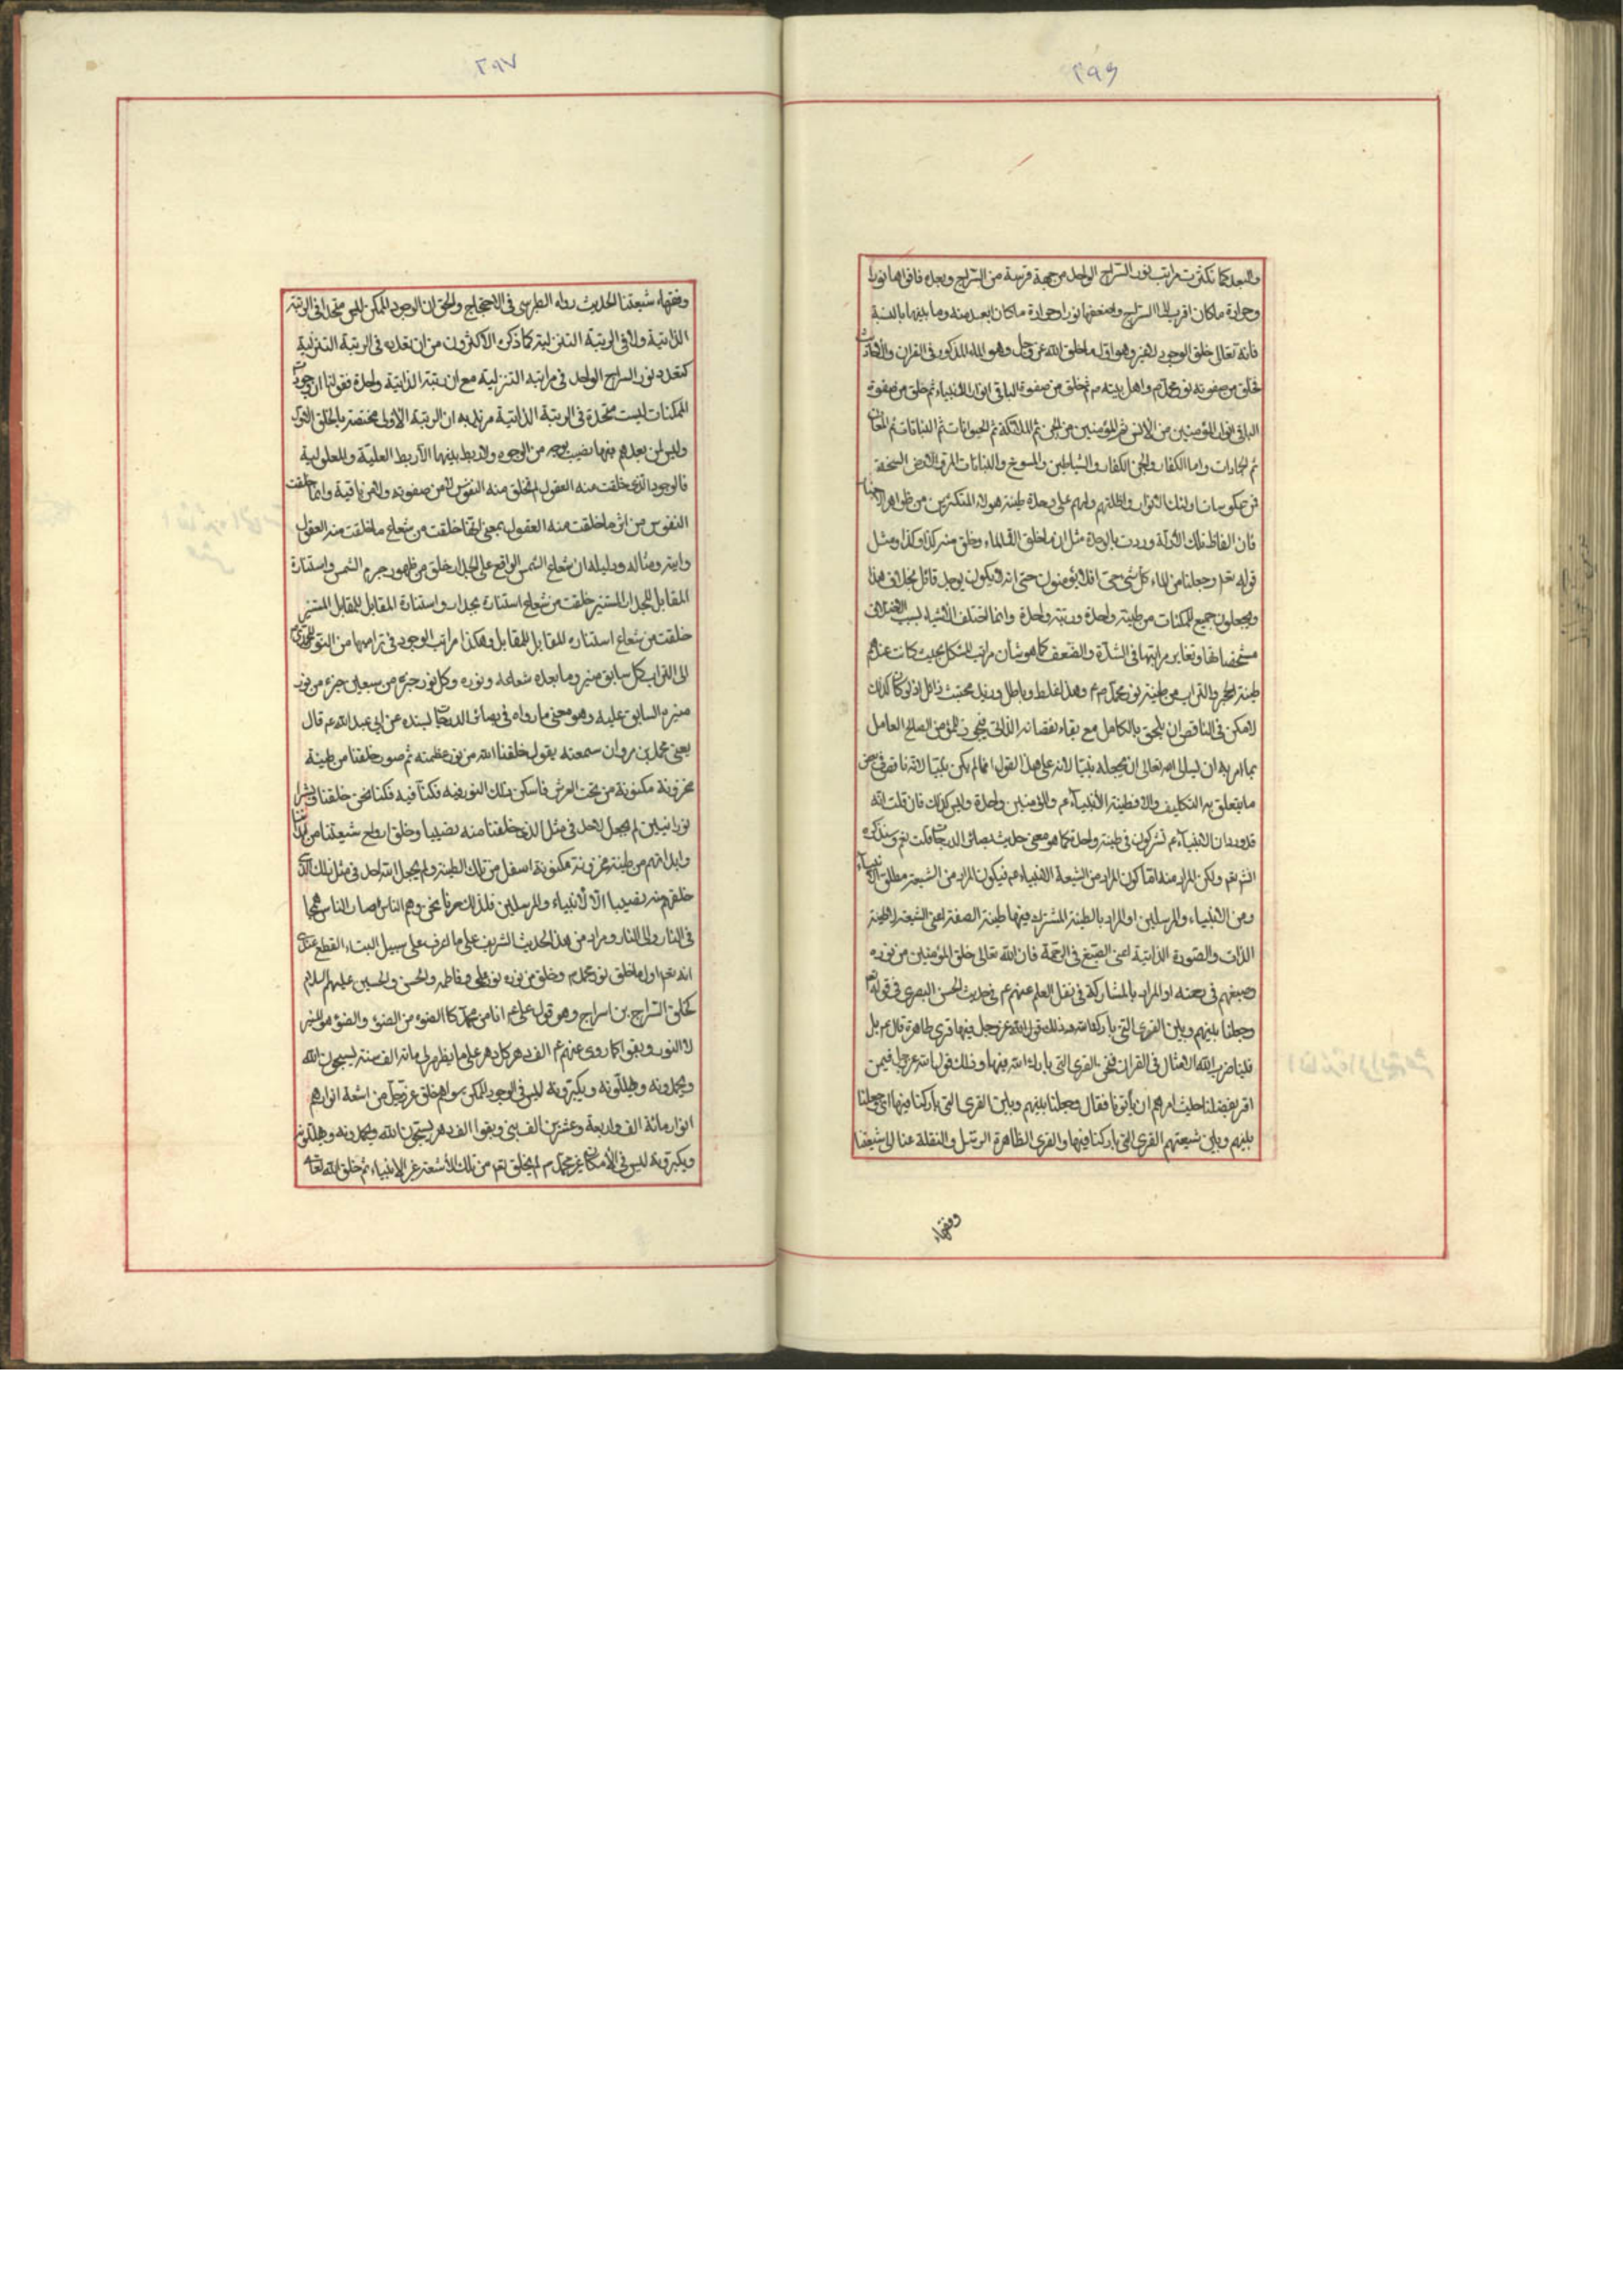 ٢٩٦
والبعد كما تكثرت مراتب نور السراج الواحد من جهة قربه من السراج وبعده فاقواها نورا
وحرارة ما كان اقرب الى السراج واضعفها نورا وحرارة ما كان ابعد منه وما بينهما بالنسبة
فانه تعالى خلق الوجود لا غير وهو اول ما خلق الله عز وجل وهو الماء المذكور فى القران والاحاديث
فخلق من صفوته نور محمد ص واهل بيته ص ثم خلق من صفوة الباقى انوار الانبياء ثم خلق من صفوة
الباقى انوار المؤمنين من الانس ثم المؤمنين من الجن ثم الملائكة ثم الحيوانات ثم النباتات ثم المعادن
ثم الجمادات واما الكفار والجن الكفار والشياطين والمسوخ والنباتات المرة والارض السبخة
فمن عكوسات اولئك الانوار واظلتهم ولهم على وحدة طينة هؤلاء المتكثرين من ظواهر الاخبار
فان الفاظ تلك الادلة وردت بالوحدة مثل ان ما خلق الله الماء وخلق منه كذا وكذا ومثل
قوله تعالى وجعلنا من الماء كل شئ حى افلا يؤمنون حتى انه لا يكون يوجد قائل بخلاف هذا
ويجعلون جميع الممكنات من طينة واحدة ورتبة واحدة وانما اختلف الاشياء بسبب اختلاف
مشخصاتها وتغاير مراتبها فى الشدة والضعف كما هو شأن مراتب المشكل بحيث كانت عندهم
طينة الحجر والتراب من طينة نور محمد ص وهذا غلط وباطل وزبد مجتث زائل اذ لو كان كذلك
لامكن فى الناقص ان يلحق بالكامل مع بقاء نقصانه الذاتى فيجوز للمؤمن الصالح العامل
بما امر به ان يسال الله تعالى ان يجعله نبيا لانه على هذا القول انما لم يكن نبيا لانه ناقص فى بعض
ما يتعلق به التكليف والا فطينة الأنبياء ع والمؤمنين واحدة وليس كذلك فان قلت انه
قد ورد ان الانبياء ع تشركون فى طينة واحدة كما هو معنى حديث بصائر الدرجات قلت نعم وسنذكره
انشاء الله نعم ولكن المراد منه اما كون المراد من الشيعة الانبياء ع فيكون المراد من الشيعة مطلق الانبياء
ومن الانبياء والمرسلين او المراد بالطينة المشترك فيها طينة الصفة اعنى الشيعة لا طينة
الذات والصورة الذاتية اعنى الصبغ فى الرحمة فان الله تعالى خلق المؤمنين من نوره
وصبغهم فى رحمته او المراد بالمشاركة فى نقل العلم عنهم ع فى حديث الحسن البصرى فى قوله تعالى
وجعلنا بينهم وبين القرى التى باركنا فيها وذلك قول الله عز وجل فيها قرى ظاهرة قال ع بل
فينا ضرب الله الامثال فى القران فنحن القرى التى بارك الله فيها وذلك قول الله عز وجل فيمن
اقر بفضلنا حيث امرهم ان يأتونا فقال وجعلنا بينهم وبين القرى التى باركنا فيها اى جعلنا
بينهم وبين شيعتهم القرى التى باركنا فيها والقرى الظاهرة الرسل والنقلة عنا الى شيعتنا
وفقهاء
٢٩٧
وفقهاء شيعتنا الحديث رواه الطبرسى فى الاحتجاج والحق ان الوجود الممكن ليس متحدا فى الرتبة
الذاتية ولا فى الرتبة التنزلية كما ذكره الاكثرون من ان تعدده فى الرتبة التنزلية
كتعدد نور السراج الواحد فى مراتبه التنزلية مع ان رتبته الذاتية واحدة فقولنا ان وجود
الممكنات ليست متحدة فى الرتبة الذاتية نريد به ان الرتبة الاولى مختصة بالخلق الاول
وليس لمن بعدهم فيها نصيب بوجه من الوجوه ولا ربط بينهما الا ربط العلية والمعلولية
فالوجود الذى خلقت منه العقول لم تخلق منه النفوس لا من صفوته ولا من باقيه وانما خلقت
النفوس من اثر ما خلقت منه العقول بمعنى انها خلقت من شعاع ما خلقت منه العقول
وايته ومثاله ودليله ان شعاع الشمس الواقع على الجدار خلق من ظهور جرم الشمس واستنارة
المقابل للجدار المستنير خلقت من شعاع استنارة الجدار واستنارة المقابل للمقابل المستنير
خلقت من شعاع استنارة المقابل للمقابل وهكذا مراتب الوجود فى تراميها من النور المحمدى ص
الى التراب كل سابق منير وما بعده شعاعه ونوره وكل نور جزء من سبعين جزء من نور
منيره السابق عليه وهو معنى ما رواه فى بصائر الدرجات بسنده عن ابى عبد الله ع قال
يعنى محمد بن مروان سمعته يقول خلقنا الله من نور عظمته ثم صور خلقنا من طينة
مخزونة مكنونة من تحت العرش فاسكن ذلك النور فيه فكنا فيه فكنا نحن خلقنا وبشرا
نورانيين لم يجعل لاحد فى مثل الذى خلقنا منه نصيبا وخلق ارواح شيعتنا من ابداننا
وابدانهم من طينة مخزونة مكنونة اسفل من تلك الطينة ولم يجعل الله لاحد فى مثل ذلك الذى
خلقهم منه نصيبا الا الأنبياء والمرسلين فلذلك صرنا نحن وهم الناس وصار الناس همجا
فى النار والى النار ومراده من هذا الحديث الشريف على ما اعرف على سبيل البتات القطع عندى
انه تعالى اول ما خلق نور محمد ص وخلق من نوره نور على وفاطمة والحسن والحسين عليهم السلام
كخلق السراج من سراج وهو قول على ع انا من محمد كالضوء من الضوء والضوء هو المنير
لا النور وبقوا كما روى عنهم ع الف دهر كل دهر على ما يظهر لى مائة الف سنة يسبحون الله
ويحمدونه ويهللونه ويكبرونه ليس فى الوجود الممكن سواهم خلق عز وجل من اشعة انوارهم
انوار مائة الف واربعة وعشرين الف نبى وبقوا الف دهر يسبحون الله ويحمدونه ويهللونه
ويكبرونه ليس فى الأمكان غير محمد ص لم يخلق تعالى من تلك الأشعة غير الانبياء ثم خلق الله تعالى